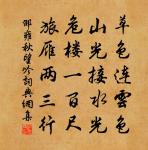 草色連雲色
山光接水光
危樓一百尺
旅雁兩三行
邵雍秋望吟詞典網集